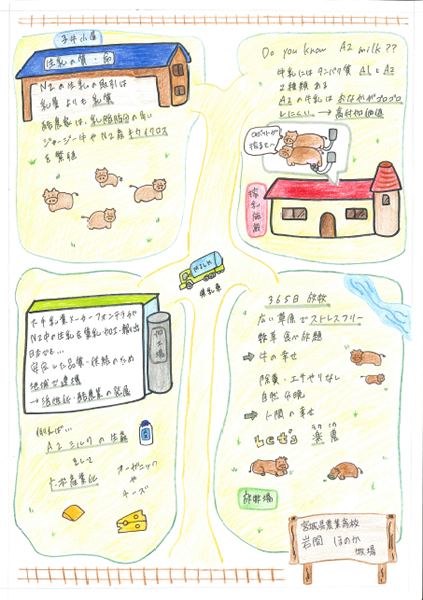 子牛小屋
生乳の質・面
NZの生乳の取引は
乳量よりも乳質
酪農家は、乳脂肪分の高い
ジャージー牛やNZ産キウイクロス
を繁殖
Do you know A2 milk??
牛乳にはタンパク質A1とA2
2種類ある
A2の牛乳はおなかがゴロゴロ
しにくい → 高付加価値
ロボットが
搾るモ〜
搾乳施設
MILK
集乳車
大手乳業メーカーフォンテラが
NZ中の生乳を集乳・加工・輸出
日本でも…
安定した品質・供給のため
地域で連携
→ 活性化・酪農業の発展
加工場
例えば…
A2ミルクの生産
そして
六次産業化
オーガニック
や
チーズ
365日 放牧
広い草原でストレスフリー
牧草食べ放題
⇒ 牛の幸せ
除糞・エサやりなし
自然分娩
⇒ 人間の幸せ
Let's 楽農
ラク ノウ
放牧場
宮城県農業高校
岩間 ほのか
牧場